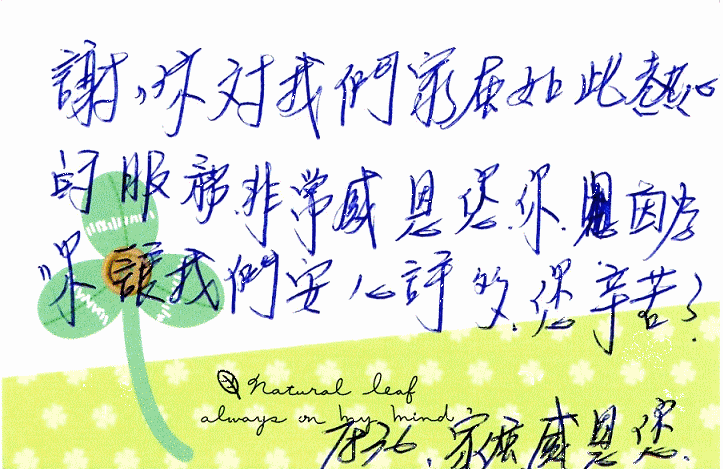 謝〻你對我們家屬如此熱心
的服務非常感恩您.你.因為
"你"讓我們安心許多.您辛苦了
Natural leaf
always on my mind
床36.家屬感恩您.